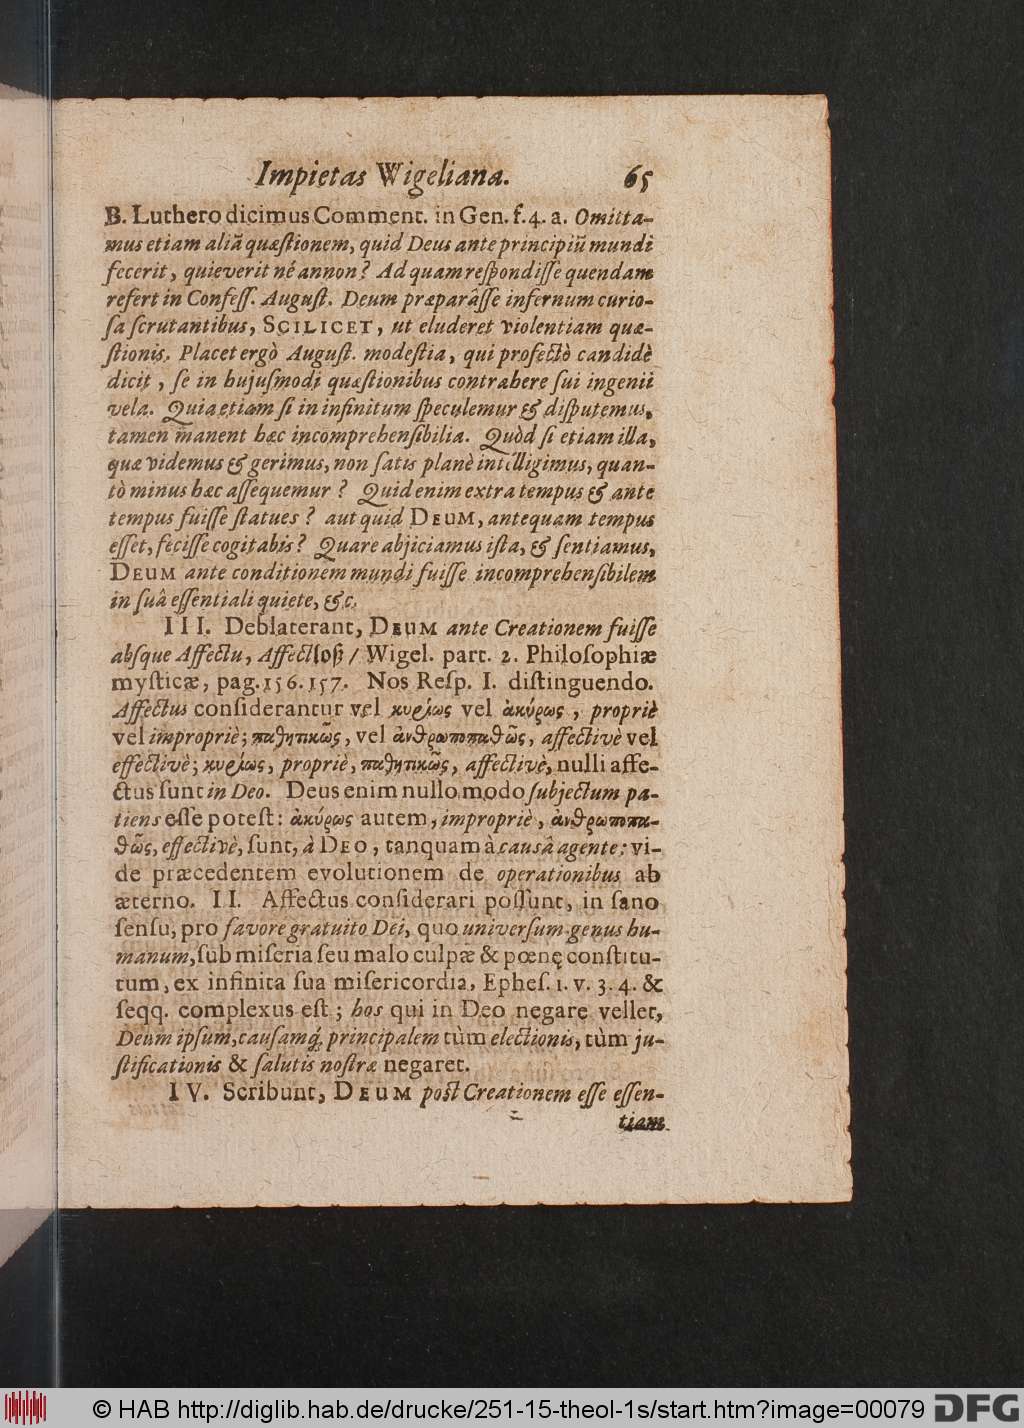 Impietas Wigeliana. 65
B. Luthero dicimus Comment. in Gen. f. 4. a. Omitta-
mus etiam aliā quæſtionem, quid Deus ante principiū mundi
fecerit, quieverit né annon? Ad quam reſpondiſſe quendam
refert in Confeſſ. Auguſt. Deum præparâſſe infernum curio-
ſa ſcrutantibus, SCILICET, ut eluderet violentiam quæ-
ſtionis. Placet ergò Auguſt. modeſtia, qui profectò candidè
dicit, ſe in hujuſmodi quæſtionibus contrahere ſui ingenii
vela. Quia etiam ſi in infinitum ſpeculemur & diſputemus,
tamen manent hæc incomprehenſibilia. Quòd ſi etiam illa,
quæ videmus & gerimus, non ſatis planè intelligimus, quan-
tò minus hæc aſſequemur? Quid enim extra tempus & ante
tempus fuiſſe ſtatues? aut quid DEUM, antequam tempus
eſſet, feciſſe cogitabis? Quare abjiciamus iſta, & ſentiamus,
DEUM ante conditionem mundi fuiſſe incomprehenſibilem
in ſuâ eſſentiali quiete, &c.
III. Deblaterant, DEUM ante Creationem fuiſſe
absque Affectu, Affectloß / Wigel. part. 2. Philoſophiæ
myſticæ, pag. 156. 157. Nos Reſp. I. diſtinguendo.
Affectus conſiderantur vel κυρίως vel ἀκύρως, propriè
vel impropriè; παθητικῶς, vel ἀνθρωποπαθῶς, affectivè vel
effectivè; κυρίως, propriè, παθητικῶς, affectivè, nulli affe-
ctus ſunt in Deo. Deus enim nullo modo ſubjectum pa-
tiens eſſe poteſt: ἀκύρως autem, impropriè, ἀνθρωποπα-
θῶς, effectivè, ſunt, à DEO, tanquam à cauſâ agente: vi-
de præcedentem evolutionem de operationibus ab
æterno. II. Affectus conſiderari poſſunt, in ſano
ſenſu, pro favore gratuito Dei, quo univerſum genus hu-
manum, ſub miſeria ſeu malo culpæ & pœnę conſtitu-
tum, ex infinita ſua miſericordia, Epheſ. 1. v. 3. 4. &
ſeqq. complexus eſt; hos qui in Deo negare vellet,
Deum ipſum, cauſamq́; principalem tùm electionis, tùm ju-
ſtificationis & ſalutis noſtræ negaret.
IV. Scribunt, DEUM poſt Creationem eſſe eſſen-
tiam
© HAB http://diglib.hab.de/drucke/251-15-theol-1s/start.htm?image=00079
DFG